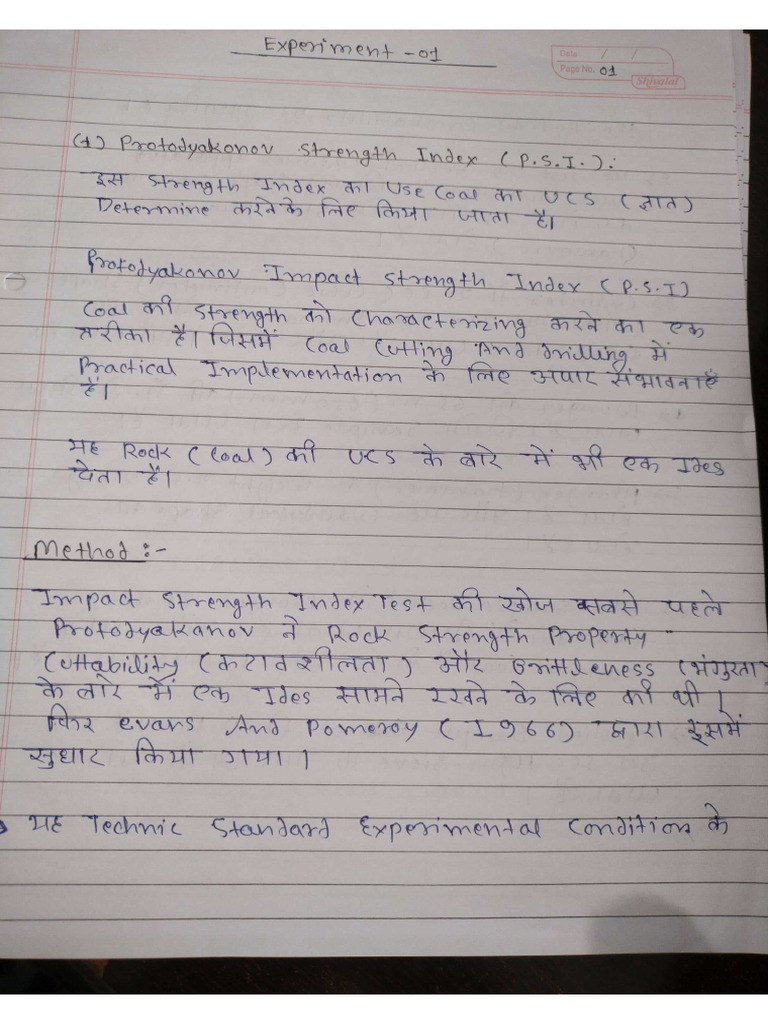 Experiment -01
Date / /
Page No. 01
Shivalal
(1) Protodyakonov Strength Index (P.S.I.):
इस Strength Index का Use Coal का UCS (ज्ञात)
Determine करने के लिए किया जाता है।
Protodyakonov Impact Strength Index (P.S.I)
Coal की Strength को Characterizing करने का एक
तरीका है। जिसमें Coal Cutting And Drilling में
Practical Implementation के लिए अपार संभावनाएँ
हैं।
यह Rock (Coal) की UCS के बारे में भी एक Ides
देता है।
Method :-
Impact Strength Index Test की खोज सबसे पहले
Protodyakanov ने Rock Strength Property
Cuttability (कटावशीलता) और Brittleness (भंगुरता)
के बारे में एक Ides सामने रखने के लिए की थी।
फिर evans And Pomeroy (1966) द्वारा इसमें
सुधार किया गया।
यह Technic Standard Experimental Condition के